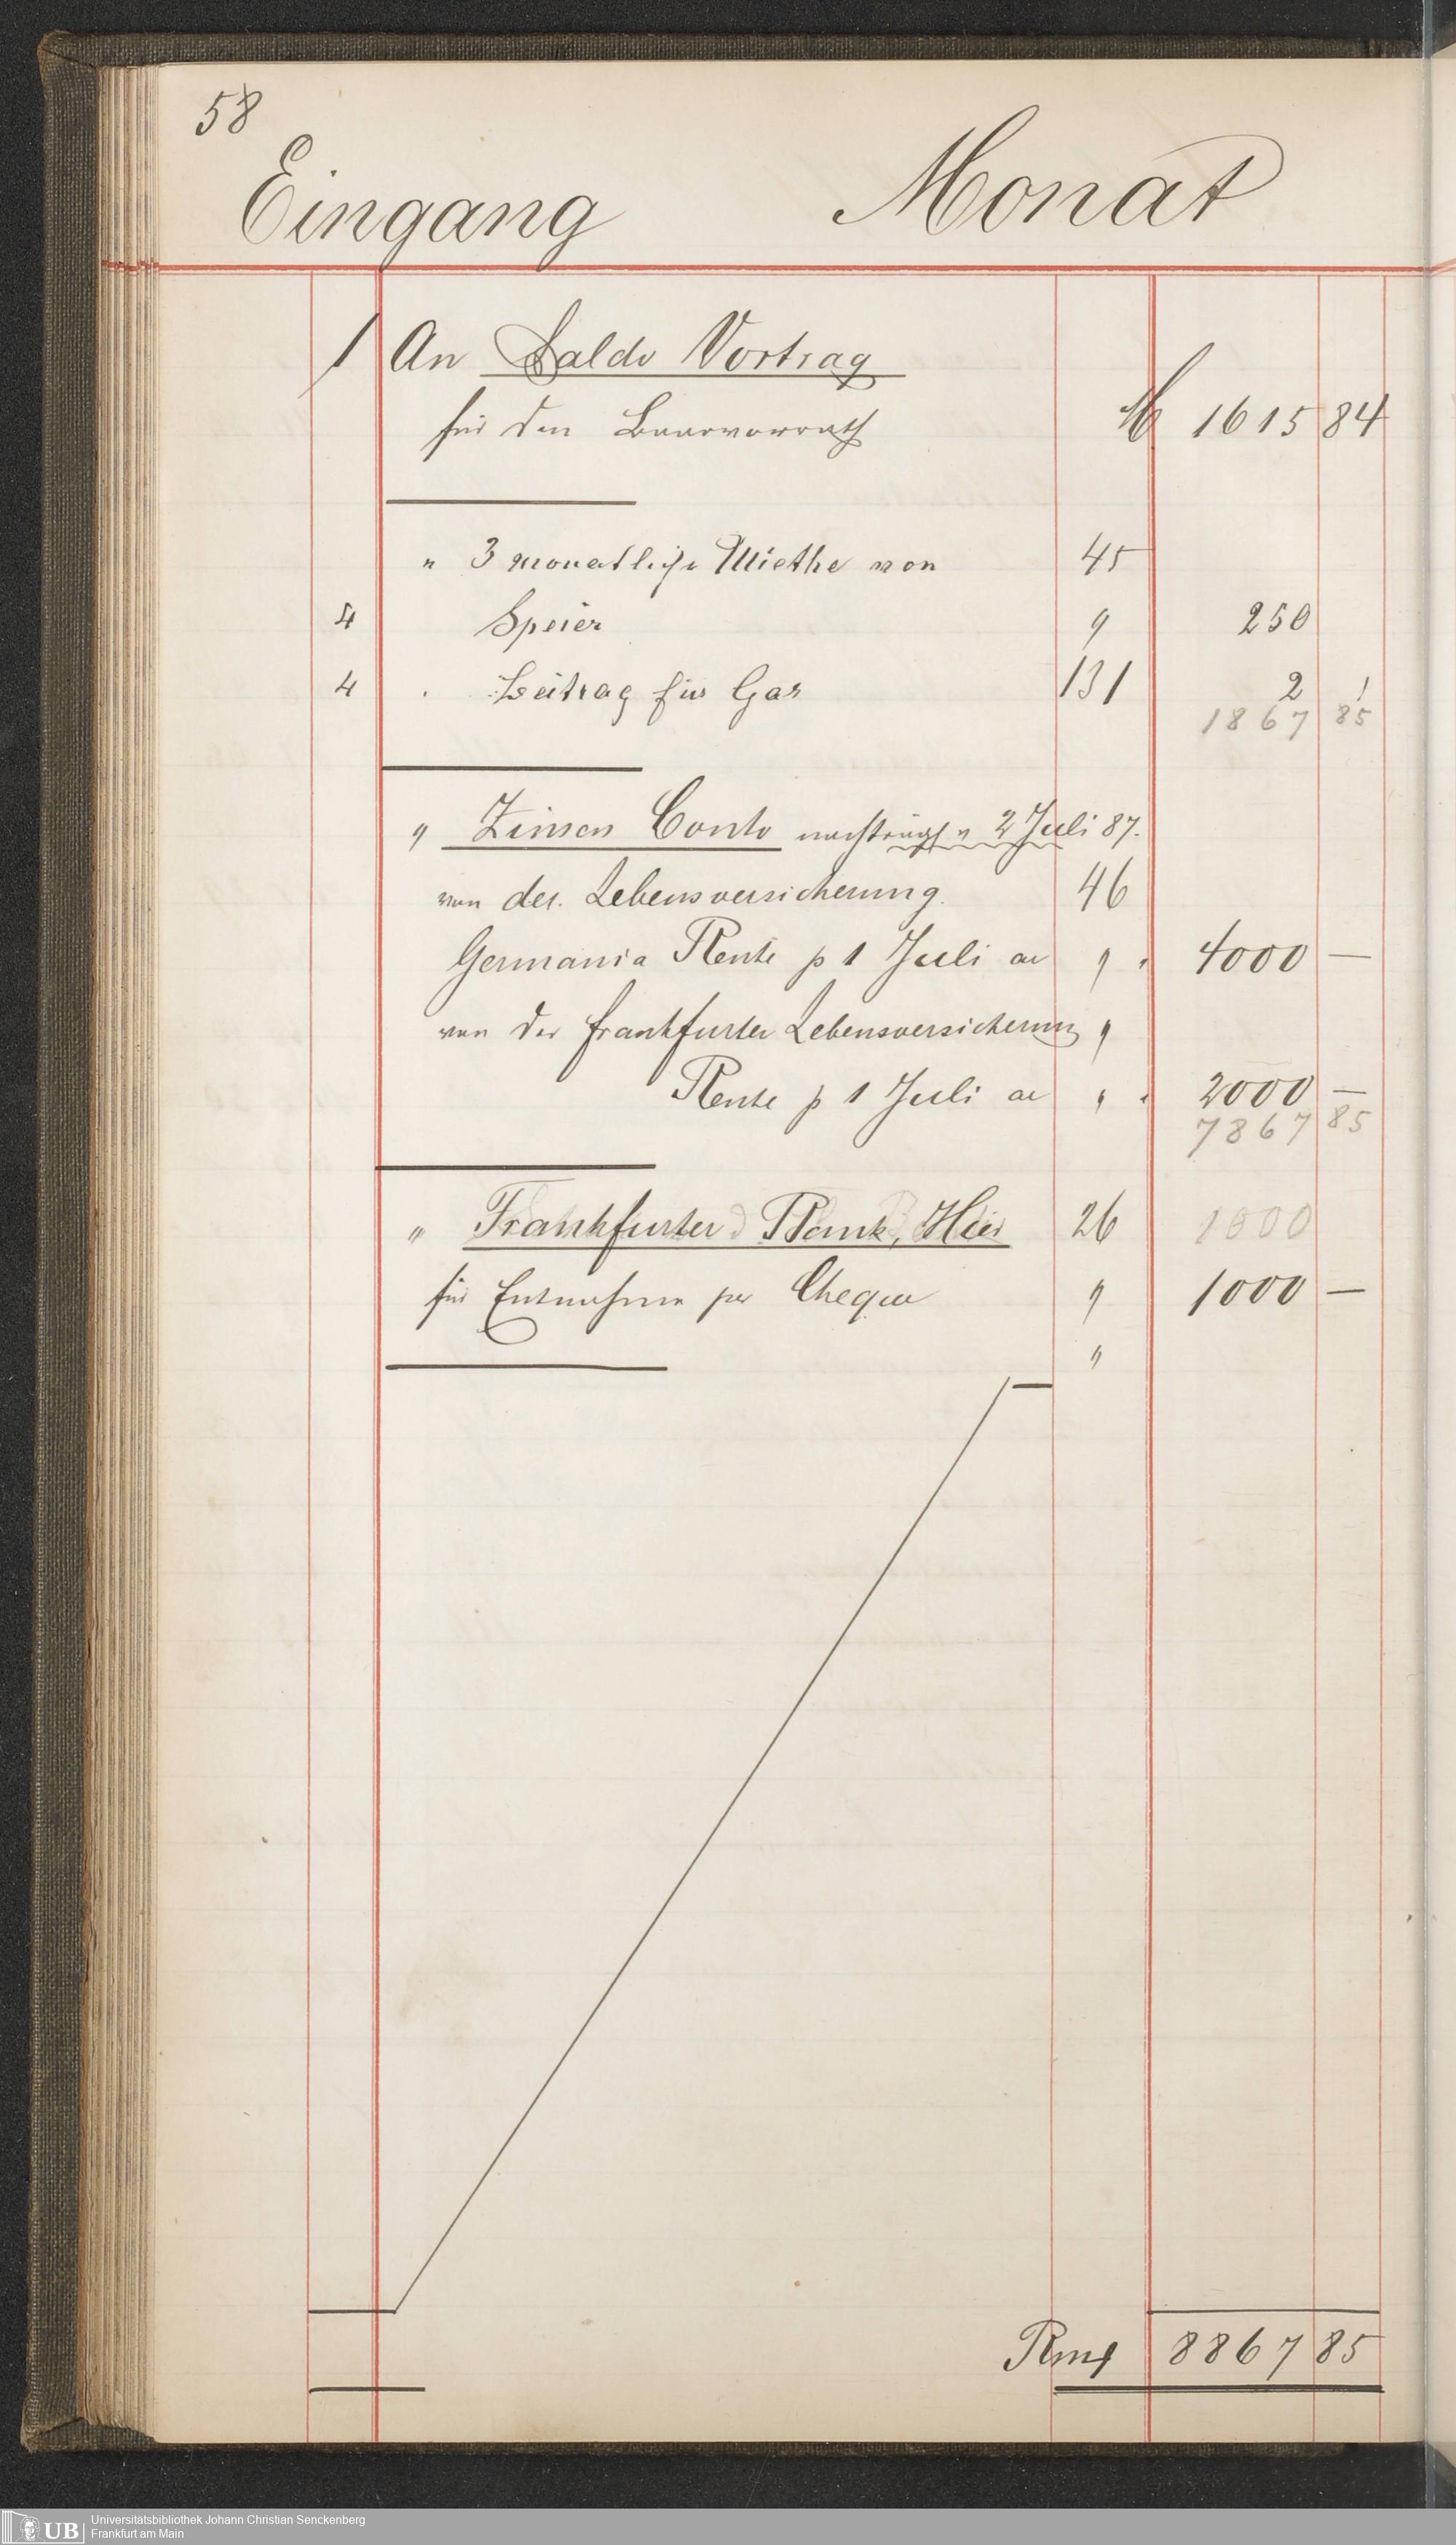 58
Eingang Monat
1 An Saldo Vortrag
für den Baarvorrath M 1615 84
" 3 monatliche Miethe von 45
4 Speier " 250
4 " Beitrag für Gas 131 2 1
1867 85
" Zinsen Conto nachträgl. v 2 Juli 87.
von der Lebensversicherung 46
Germania Rente p 1 Juli ac " " 4000 —
von der Frankfurter Lebensversicherung "
Rente p 1 Juli ac " " 2000 —
7867 85
" Frankfurter Bank, Hier 26 1000
für Entnahme per Cheque " 1000 —
"
Rm 8867 85
UB Universitätsbibliothek Johann Christian Senckenberg
Frankfurt am Main